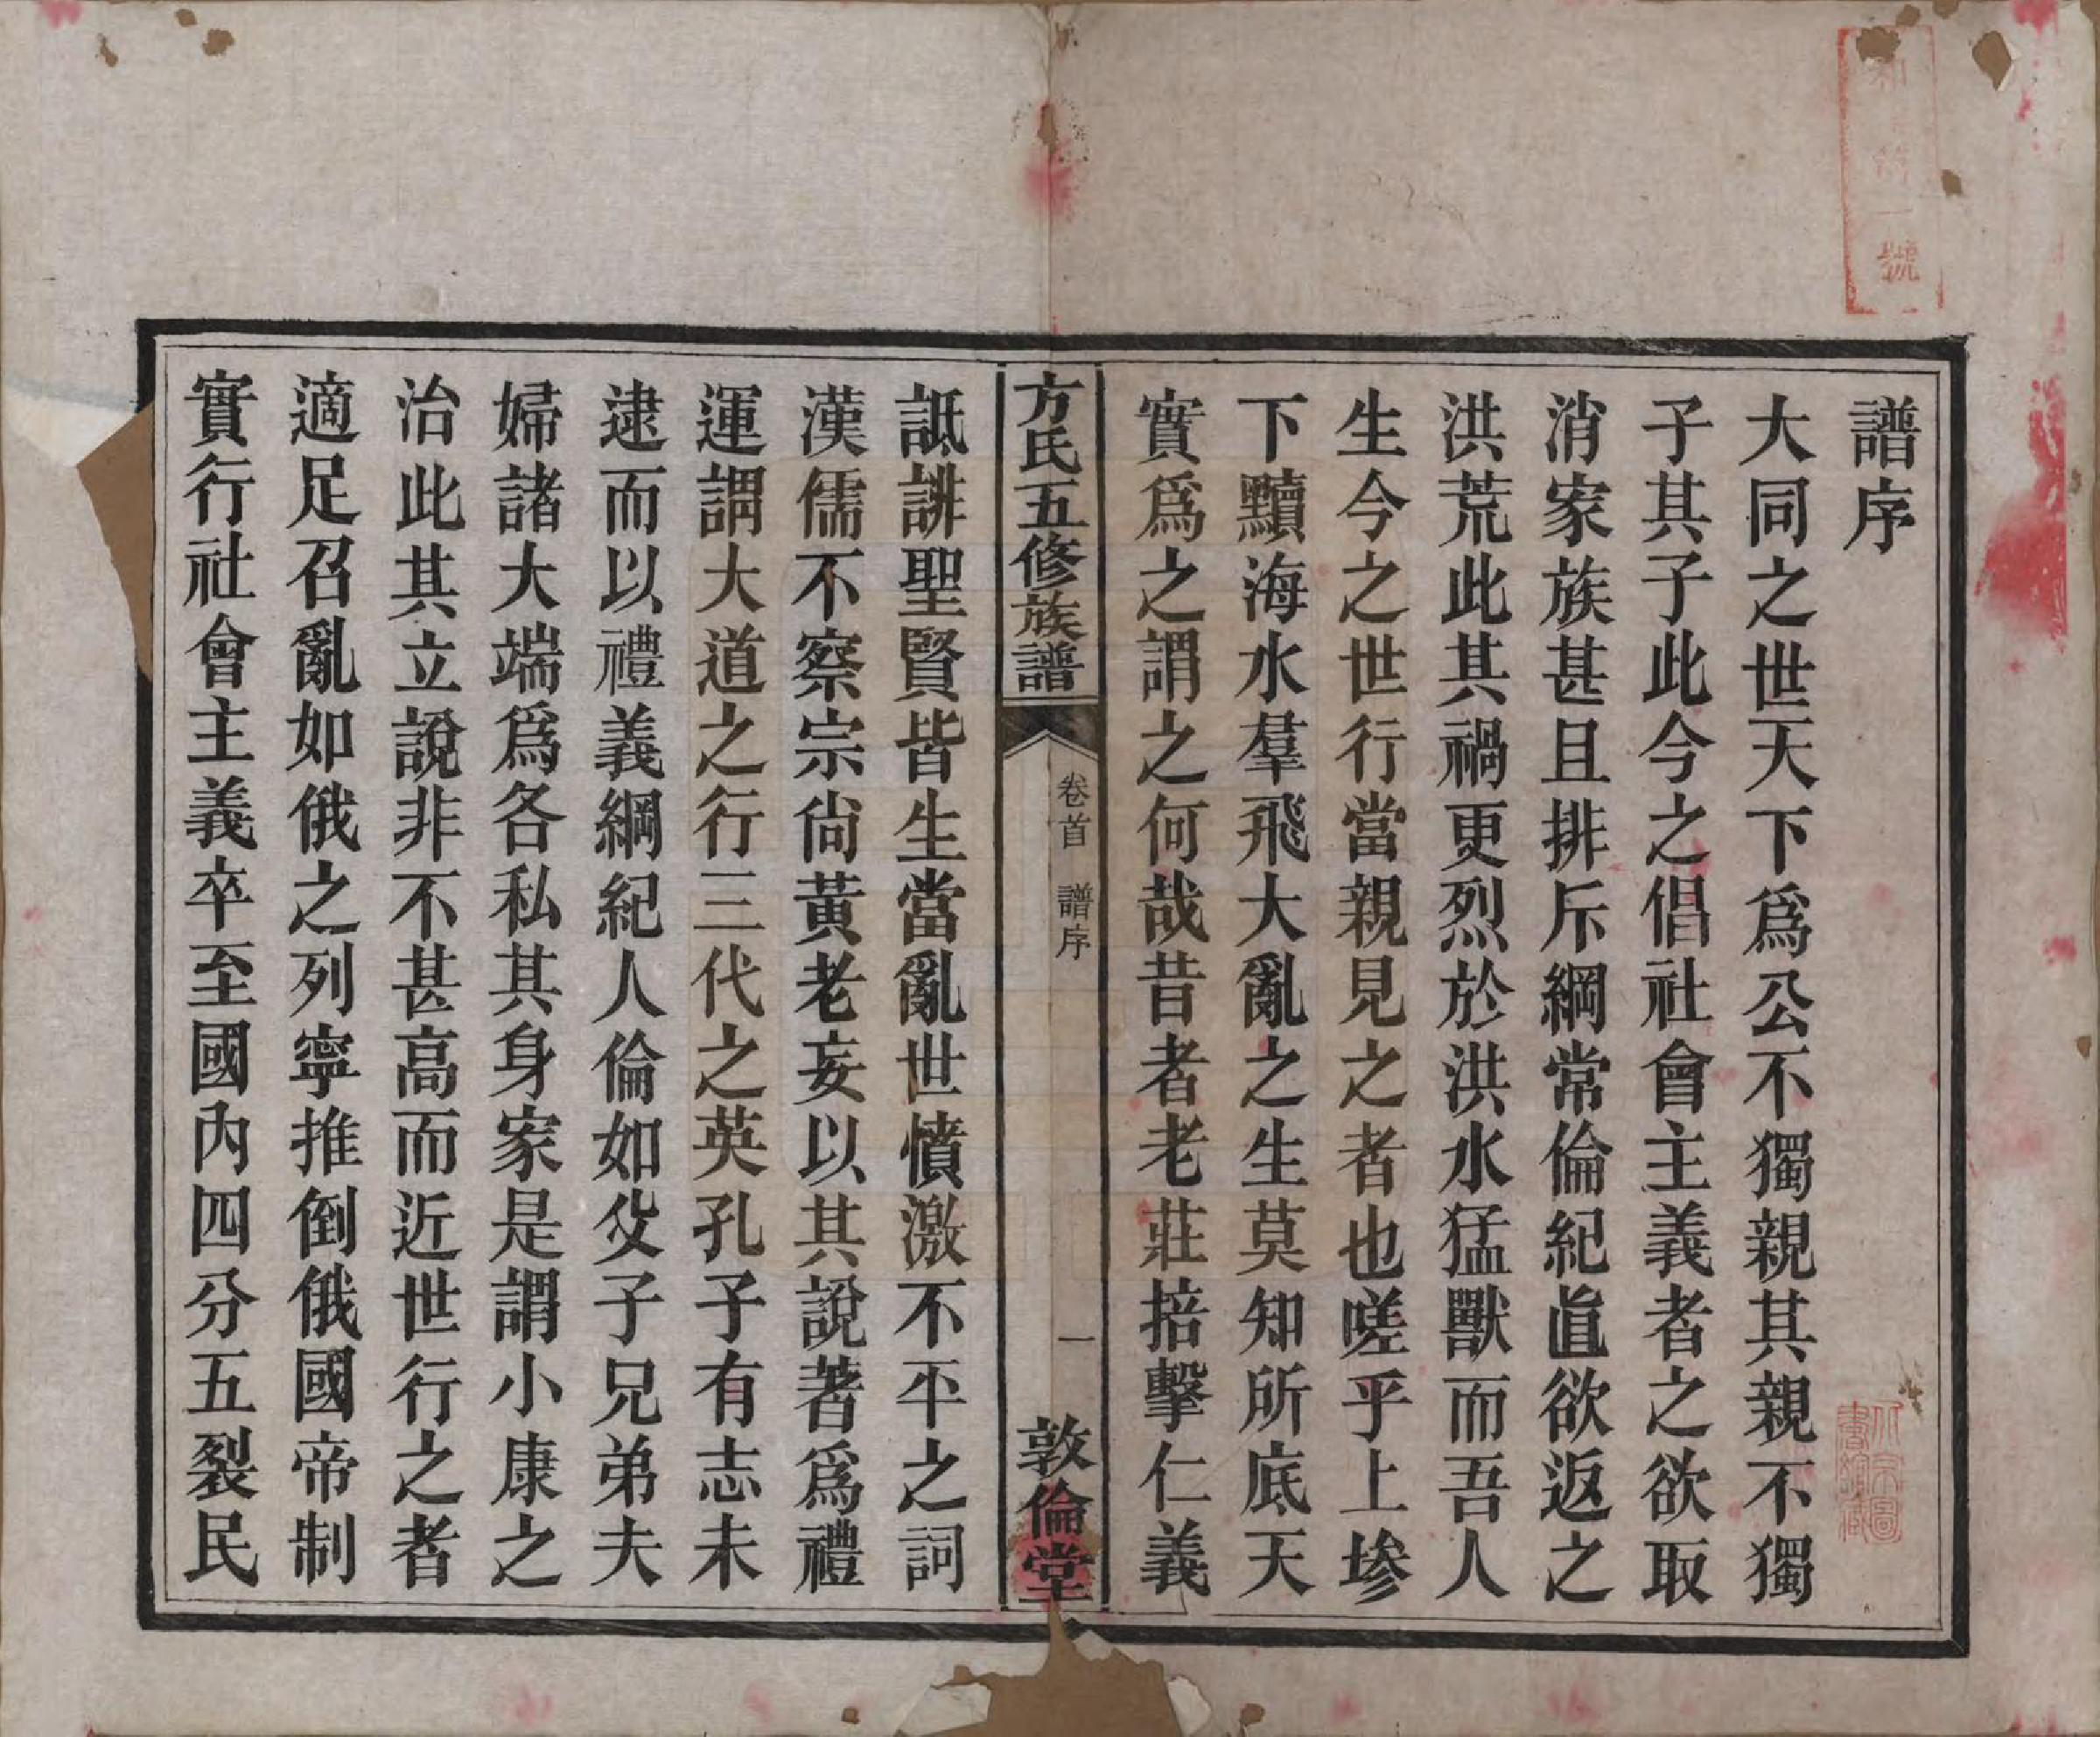 譜序
大同之世天下爲公不獨親其親不獨
子其子此今之倡社會主義者之欲取
消家族甚且排斥綱常倫紀直欲返之
洪荒此其禍更烈於洪水猛獸而吾人
生今之世行當親見之者也嗟乎上墋
下黷海水羣飛大亂之生莫知所底天
實爲之謂之何哉昔者老莊掊擊仁義
方氏五修族譜
卷首 譜序
一
敦倫堂
詆誹聖賢皆生當亂世憤激不平之詞
漢儒不察宗尙黃老妄以其說著爲禮
運謂大道之行三代之英孔子有志未
逮而以禮義綱紀人倫如父子兄弟夫
婦諸大端爲各私其身家是謂小康之
治此其立說非不甚高而近世行之者
適足召亂如俄之列寧推倒俄國帝制
實行社會主義卒至國內四分五裂民